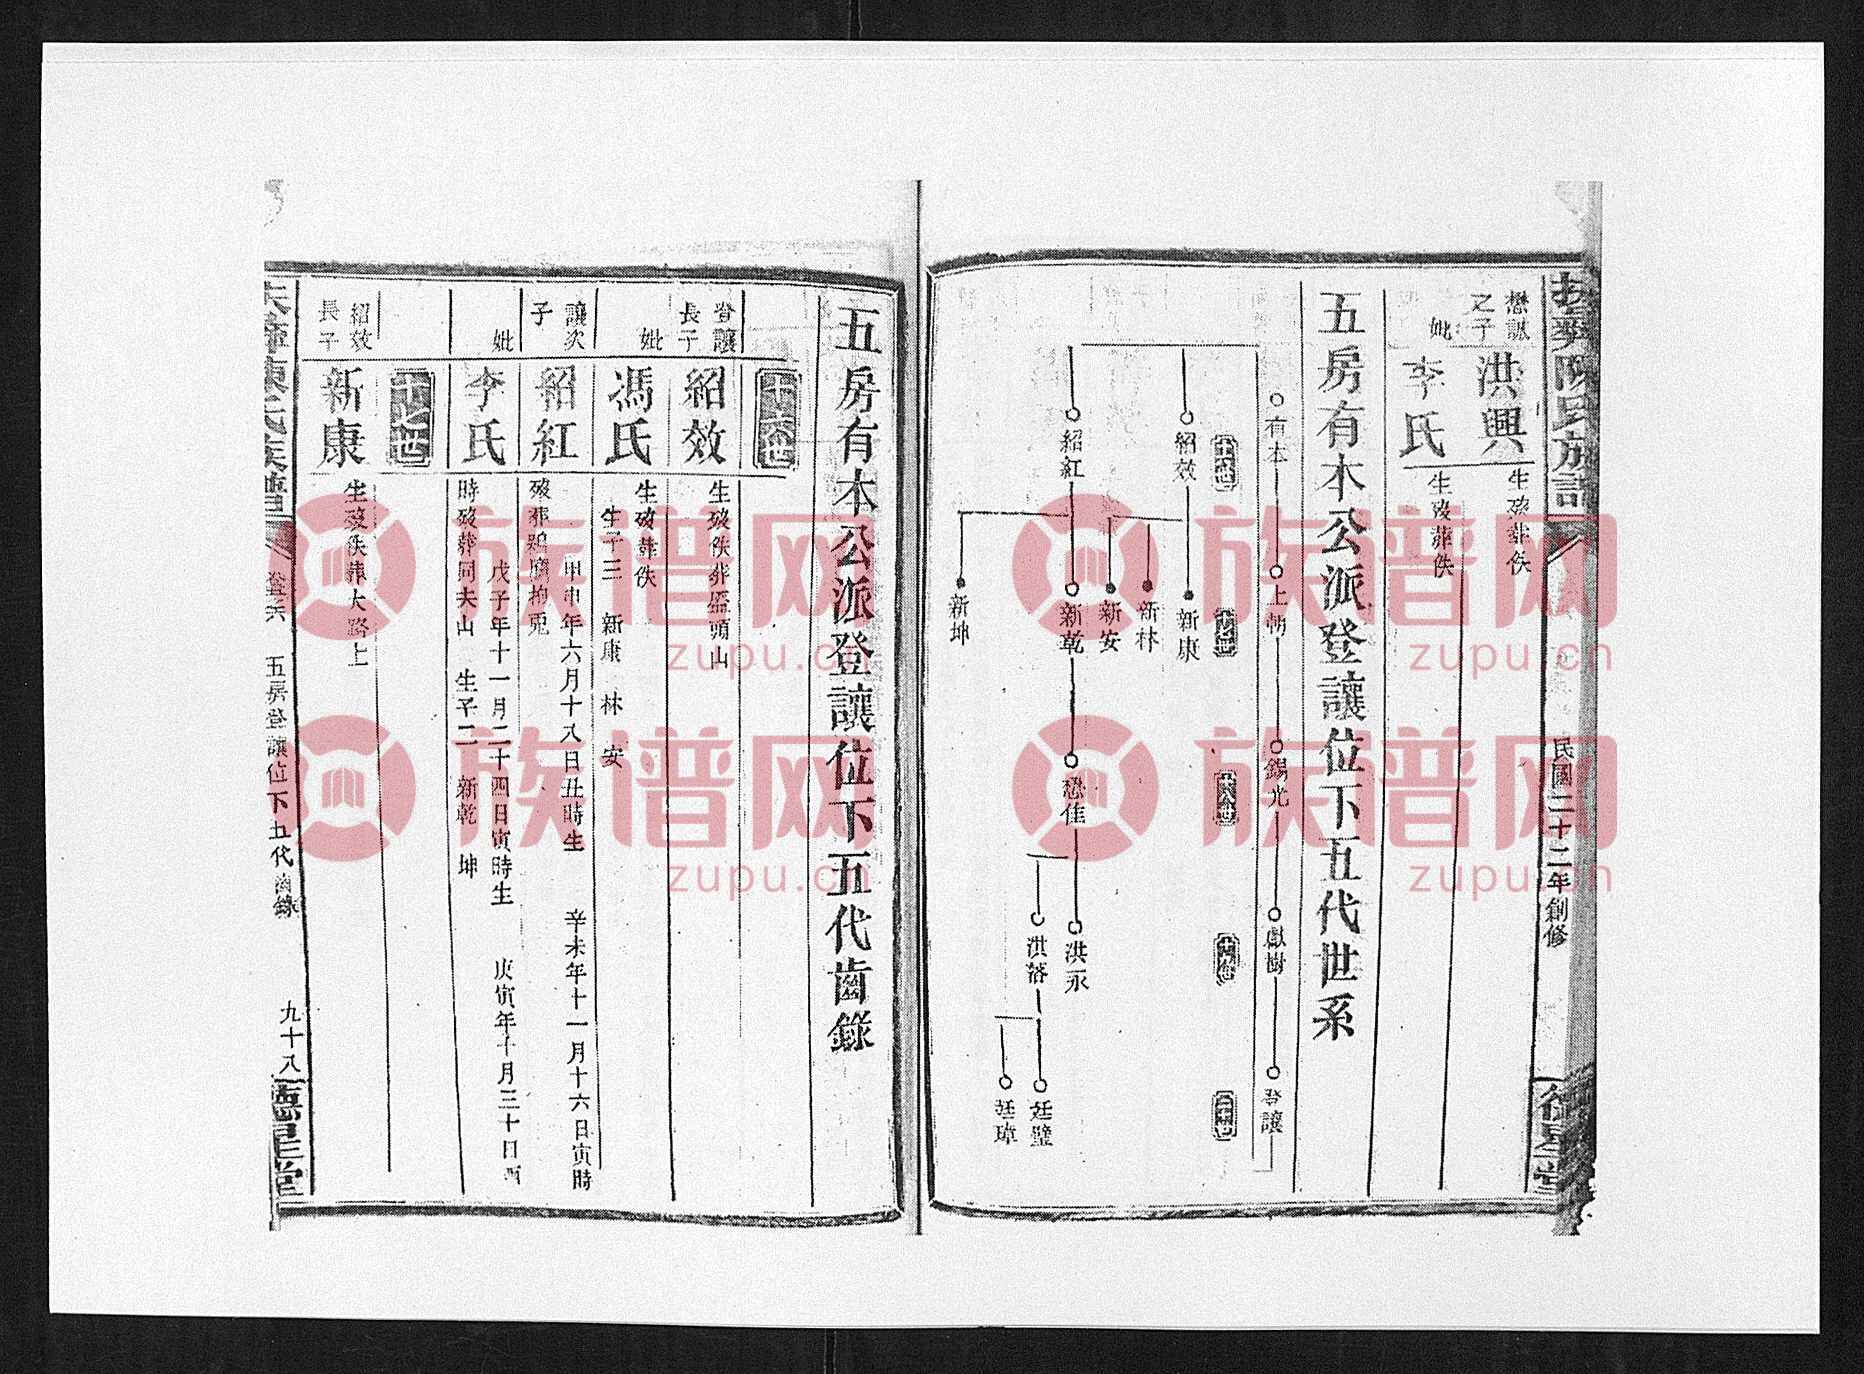 民國二十二年創修
之子
洪興
生歿葬佚
妣
李氏
生歿葬佚
五房有本公派登讓位下五代世系
有本
上朝
錫光
獻樹
登讓
十六世
十七世
十八世
十九世
二十世
紹效
紹紅
新康
新林
新安
新乾
新坤
恐佳
洪永
洪落
廷璧
廷璋
五房有本公派登讓位下五代齒錄
十六世
登讓
長子
紹效
生歿佚葬盛頭山
妣
馮氏
生歿葬佚
生子三 新康 林 安
讓次
子
紹紅
甲申年六月十八日丑時生 辛未年十一月十六日寅時
歿葬
妣
李氏
戊子年十一月二十四日寅時生 庚寅年十月三十日酉
時歿葬同夫山 生子二 新乾 坤
十七世
紹效
長子
新康
生歿佚葬大路上
陳氏族譜
卷六
五房登讓位下五代齒錄
九十八
德星堂
族谱网
zupu.cn
族谱网
zupu.cn
族谱网
zupu.cn
族谱网
zupu.cn